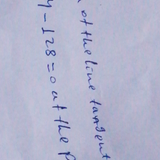 of the line tangent
y - 128 = 0 at the